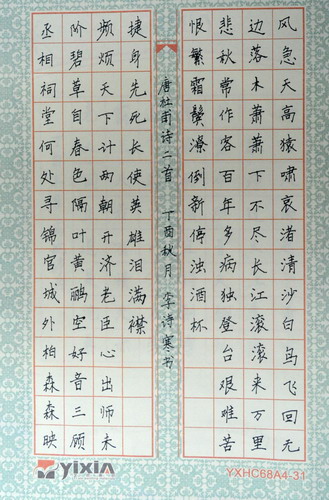 风急天高猿啸哀渚清沙白鸟飞回无
边落木萧萧下不尽长江滚滚来万里
悲秋常作客百年多病独登台艰难苦
恨繁霜鬓潦倒新停浊酒杯
唐杜甫诗二首 丁酉秋月 李诗寒书
丞相祠堂何处寻锦官城外柏森森映
阶碧草自春色隔叶黄鹂空好音三顾
频烦天下计两朝开济老臣心出师未
捷身先死长使英雄泪满襟
yixin
YXHC68A4-31